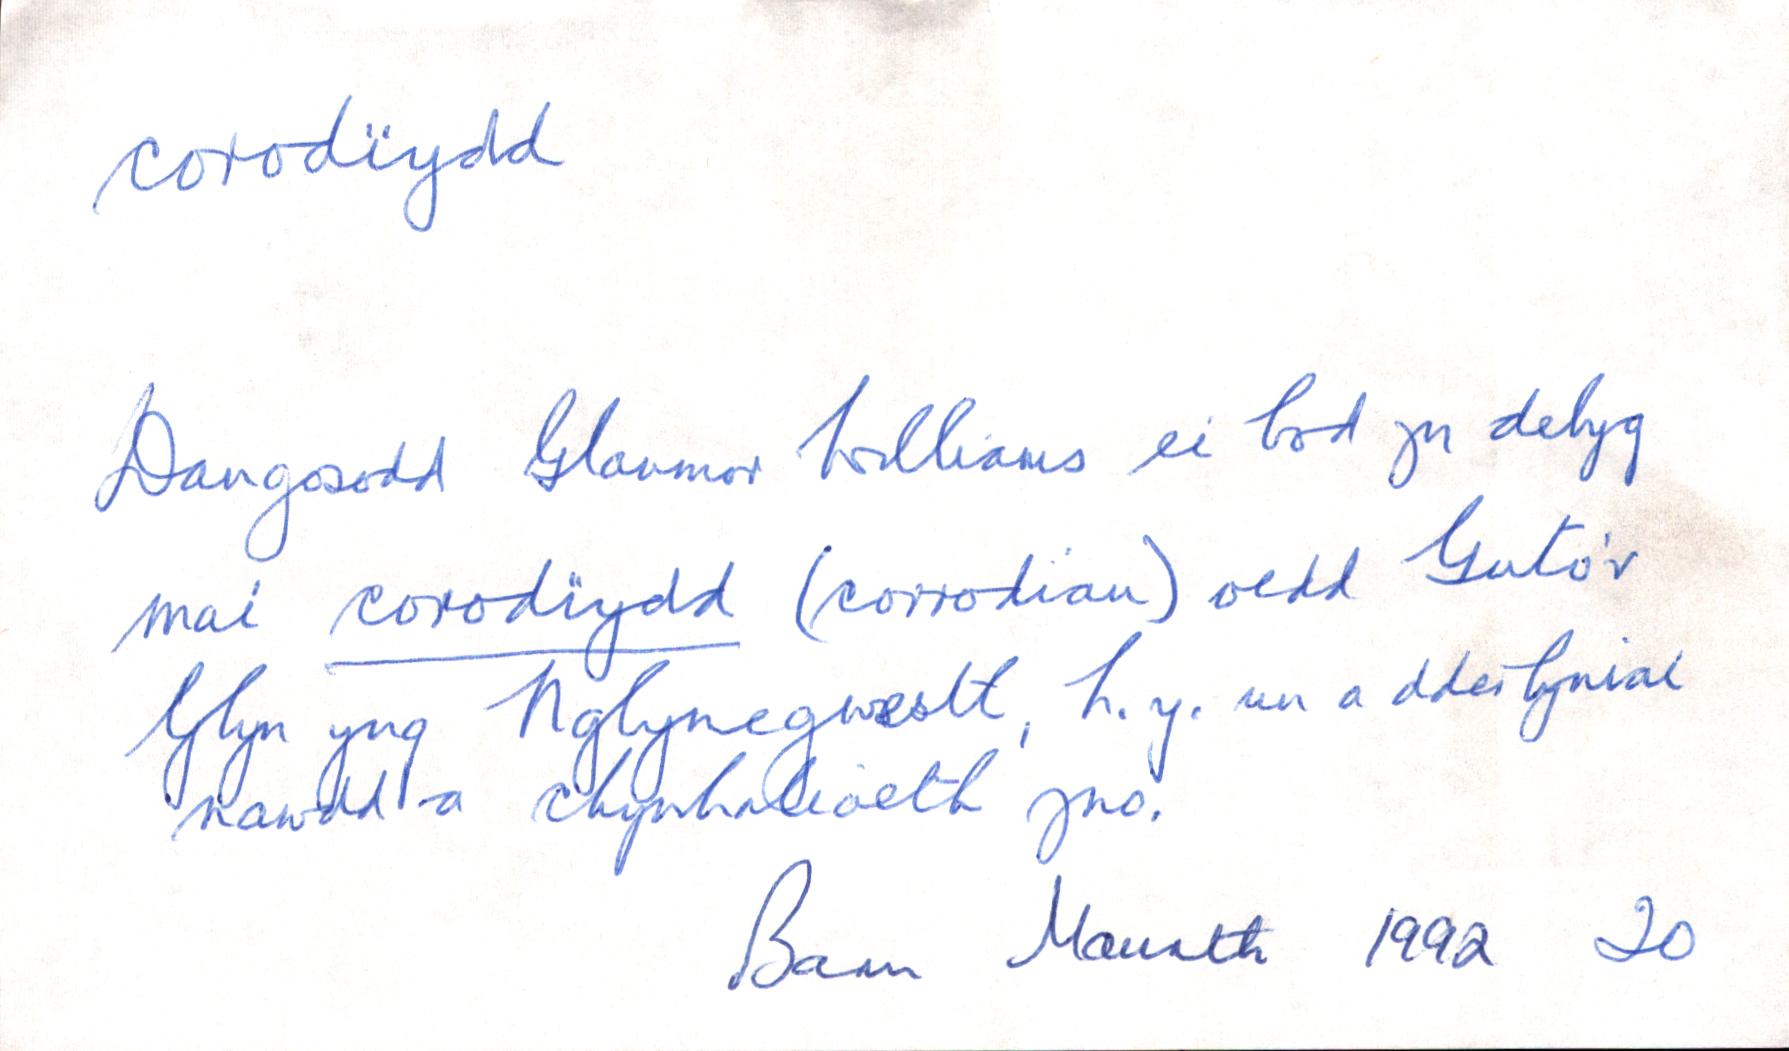 corodïydd
Dangosodd Glanmor Williams ei bod yn debyg
mai corodïydd (corrodian) oedd Guto'r
Glyn yng Nglynegwestl, h.y. un a dderbyniai
nawdd a chynhaliaeth yno.
Barn Mawrth 1992 20